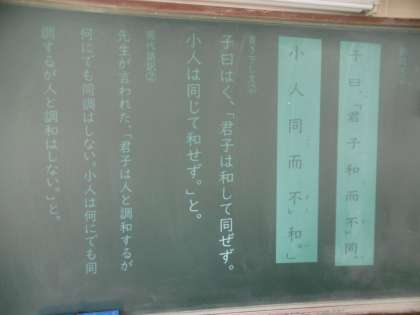 子曰、「君子和而不同、
小人同而不和。」
書き下し文②
子曰はく、「君子は和して同ぜず。
小人は同じて和せず。」と。
現代語訳②
先生が言われた、「君子は人と調和するが
何にでも同調はしない。小人は何にでも同
調するが人と調和はしない。」と。